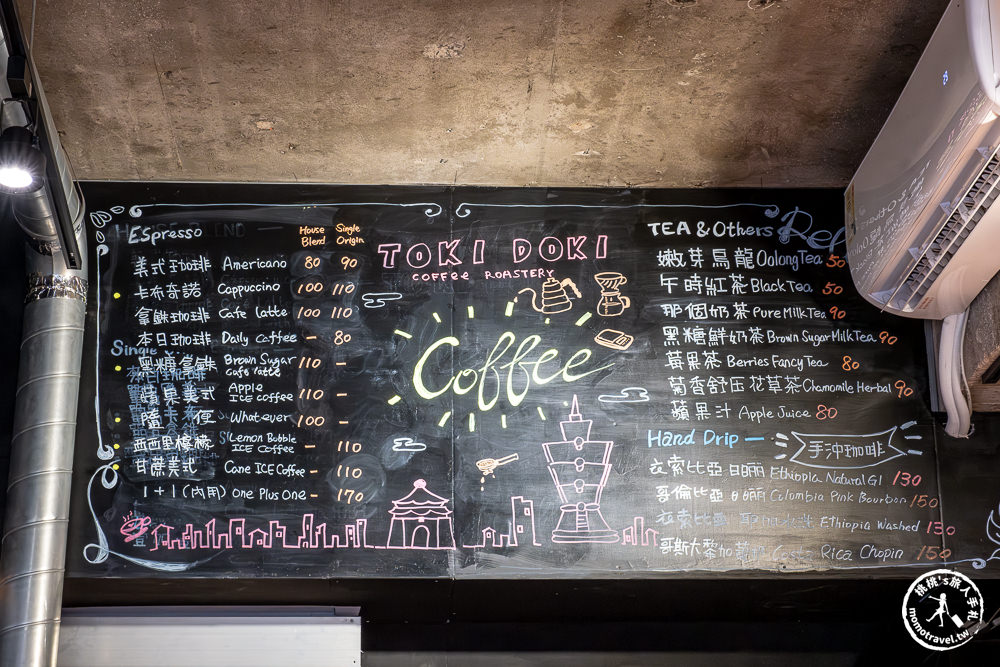 ESpresso
House Blend
Single Origin
美式珈琲 Americano 80 90
卡布奇諾 Cappuccino 100 110
拿鐵珈琲 Cafe latte 100 110
本日珈琲 Daily Coffee - 80
黑糖拿鐵 Brown Sugar Cafe latte 110 -
蘋果美式 Apple ICE coffee 110 -
隨便 Whatever 100 -
西西里檸檬 Lemon Bubble ICE Coffee - 110
甘蔗美式 Cane ICE Coffee - 110
1+1 (內用) One Plus One - 170
Single
TOKI DOKI
COFFEE ROASTERY
Coffee
TEA & Others
嫩芽烏龍 Oolong Tea 50
午時紅茶 Black Tea 50
那個奶茶 Pure Milk Tea 90
黑糖鮮奶茶 Brown Sugar Milk Tea 90
莓果茶 Berries Fancy Tea 80
菊香舒压花草茶 Chamomile Herbal 90
蘋果汁 Apple Juice 80
Hand Drip — 手沖珈琲
衣索比亞日曬 Ethiopia Natural G1 130
哥倫比亞日曬 Colombia Pink Bourbon 150
衣索比亞 Ethiopia Washed 130
哥斯大黎加 Costa Rica Chopin 150
桃桃's旅人手札
momotravel.tw